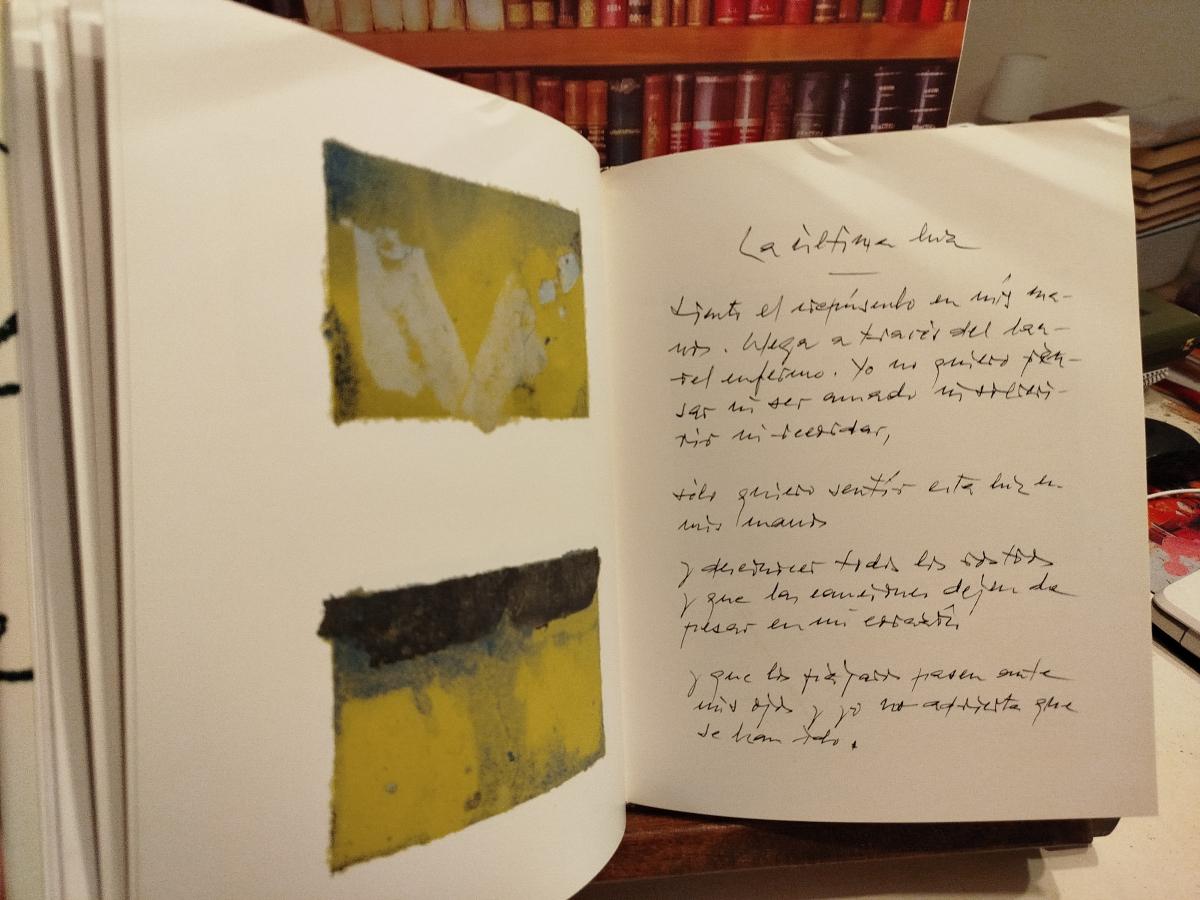 La última luz
Siento el crepúsculo en mis ma-
nos. Llega a través del lau-
rel enfermo. Yo no quiero pen-
sar ni ser amado ni ser feli-
ni recordar,
sólo quiero sentir esta luz en
mis manos
y desconocer todos los rostros
y que las canciones dejen de
pesar en mi corazón
y que los pájaros pasen ante
mis ojos y yo no advierta que
se han ido.